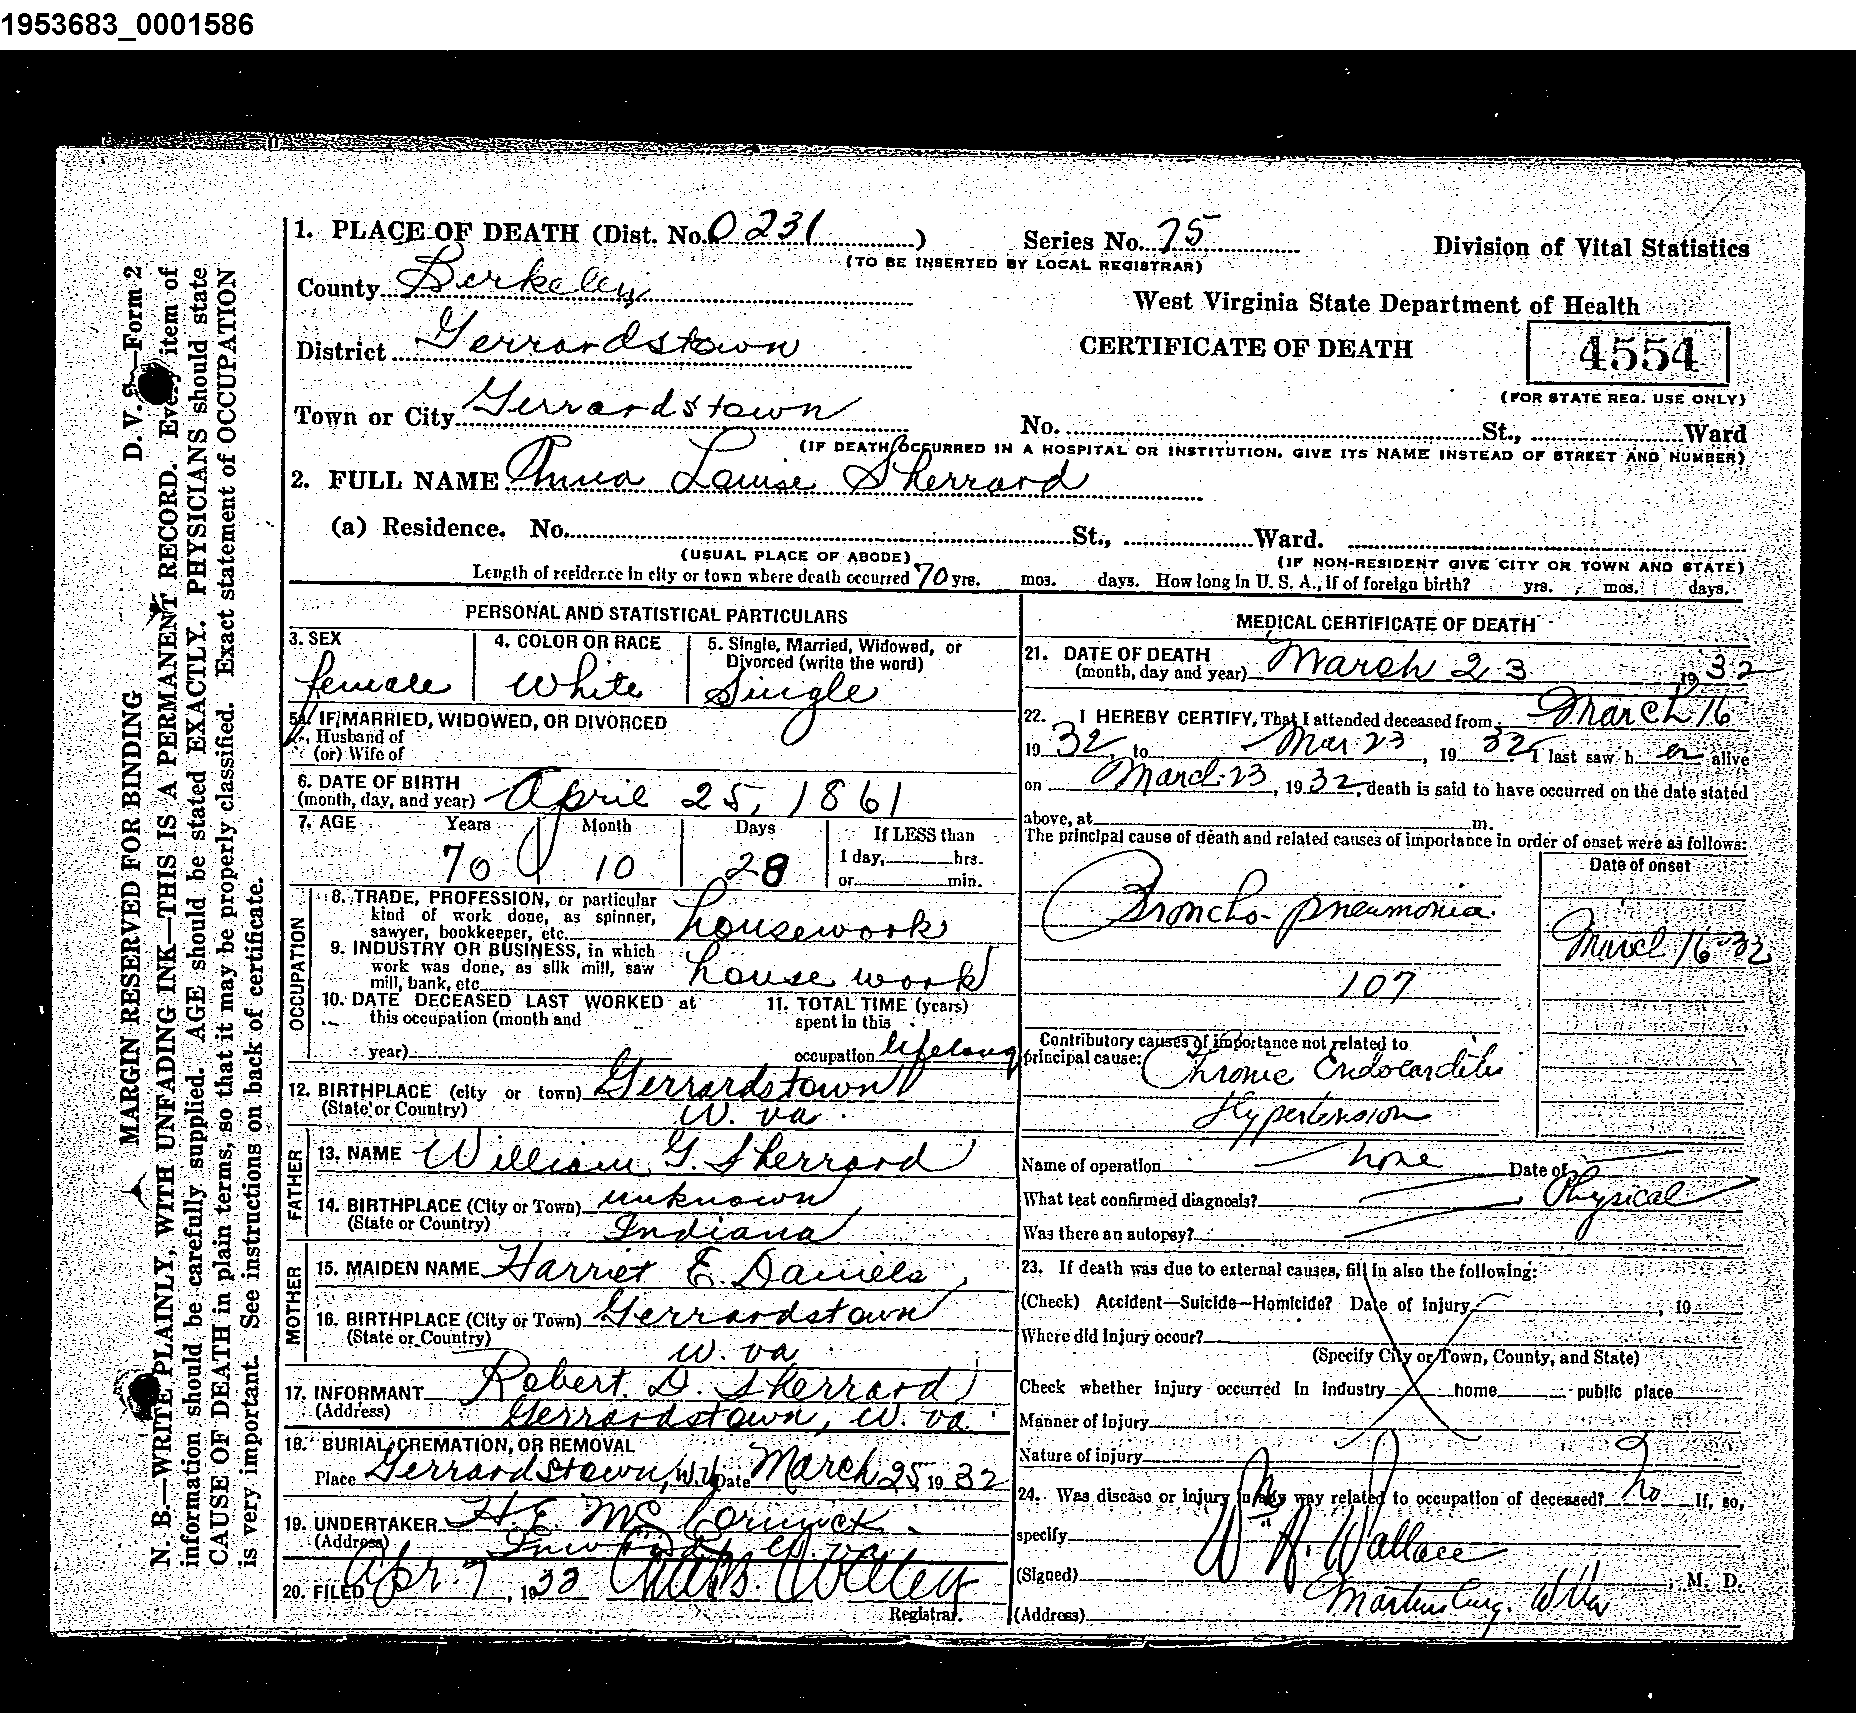 1953683_0001586
1. PLACE OF DEATH (Dist. No. 0231)
Series No. 75
(TO BE INSERTED BY LOCAL REGISTRAR)
Division of Vital Statistics
County Berkeley
West Virginia State Department of Health
District Gerrardstown
CERTIFICATE OF DEATH
4554
(FOR STATE REG. USE ONLY)
Town or City Gerrardstown
No. St., Ward
(IF DEATH OCCURRED IN A HOSPITAL OR INSTITUTION, GIVE ITS NAME INSTEAD OF STREET AND NUMBER)
2. FULL NAME Anna Louise Sherrard
(a) Residence. No. St., Ward.
(USUAL PLACE OF ABODE)
(IF NON-RESIDENT GIVE CITY OR TOWN AND STATE)
Length of residence in city or town where death occurred 70 yrs. mos. days. How long in U. S. A., if of foreign birth? yrs. mos. days.
PERSONAL AND STATISTICAL PARTICULARS
3. SEX
female
4. COLOR OR RACE
White
5. Single, Married, Widowed, or
Divorced (write the word)
Single
5a. IF MARRIED, WIDOWED, OR DIVORCED
Husband of
(or) Wife of
6. DATE OF BIRTH
(month, day, and year) April 25, 1861
7. AGE Years Month Days If LESS than
70 10 28
1 day, hrs.
or min.
OCCUPATION
8. TRADE, PROFESSION, or particular
kind of work done, as spinner,
sawyer, bookkeeper, etc. housework
9. INDUSTRY OR BUSINESS, in which
work was done, as silk mill, saw
mill, bank, etc. house work
10. DATE DECEASED LAST WORKED at
this occupation (month and
year)
11. TOTAL TIME (years)
spent in this
occupation lifelong
12. BIRTHPLACE (city or town) Gerrardstown
(State or Country) W. va.
FATHER
13. NAME William G. Sherrard
14. BIRTHPLACE (City or Town) unknown
(State or Country) Indiana
MOTHER
15. MAIDEN NAME Harriet E. Daniels
16. BIRTHPLACE (City or Town) Gerrardstown
(State or Country) W. va
17. INFORMANT Robert D. Sherrard
(Address) Gerrardstown, W. va.
18. BURIAL, CREMATION, OR REMOVAL
Place Gerrardstown, W. V Date March 25 1932
19. UNDERTAKER H. E. McCormick
(Address) Inwood W. va.
20. FILED Apr. 7, 1933
Registrar.
MEDICAL CERTIFICATE OF DEATH
21. DATE OF DEATH
(month, day and year) March 23 1932
22. I HEREBY CERTIFY, That I attended deceased from March 16
1932, to Mar 23, 1932, I last saw her alive
on March 23, 1932, death is said to have occurred on the date stated
above, at m.
The principal cause of death and related causes of importance in order of onset were as follows:
Date of onset
Broncho-pneumonia
March 16-32
107
Contributory causes of importance not related to
principal cause: Chronic Endocarditis
Hypertension
Name of operation none Date of
What test confirmed diagnosis? Physical
Was there an autopsy?
23. If death was due to external causes, fill in also the following:
(Check) Accident—Suicide—Homicide? Date of Injury , 19
Where did injury occur?
(Specify City or Town, County, and State)
Check whether injury occurred in industry home public place
Manner of injury
Nature of injury
24. Was disease or injury in any way related to occupation of deceased? no If, so,
specify
(Signed) W. H. Wallace, M. D.
(Address) Martinsburg. W Va
D. V. S—Form 2
MARGIN RESERVED FOR BINDING
N. B.—WRITE PLAINLY, WITH UNFADING INK—THIS IS A PERMANENT RECORD. Every item of
information should be carefully supplied. AGE should be stated EXACTLY. PHYSICIANS should state
CAUSE OF DEATH in plain terms, so that it may be properly classified. Exact statement of OCCUPATION
is very important. See instructions on back of certificate.